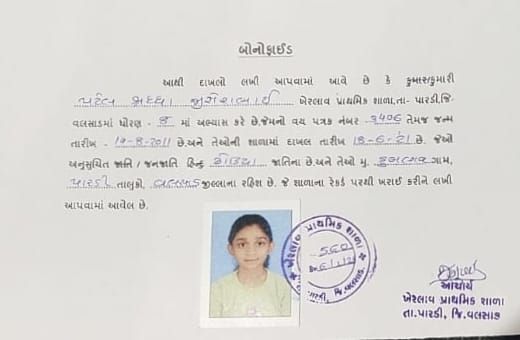 બોનોફાઈડ
આથી દાખલો લખી આપવામાં આવે છે કે કુમાર/કુમારી
પટેલ શ્રધ્ધા જીગ્નેશભાઈ ખેરલાવ પ્રાથમિક શાળા,તા- પારડી,જિ-
વલસાડમાં ધોરણ - માં અભ્યાસ કરે છે.જેમનો વય પત્રક નંબર - ૨૪૦૬ તેમજ જન્મ
તારીખ - ૧૭-8-2011 છે.અને તેઓની શાળામાં દાખલ તારીખ 18-6-'21 છે. જેઓ
અનુસુચિત જાતિ / જનજાતિ હિન્દુ ધોડિયા જાતિના છે.અને તેઓ મુ. ગામ,
પારડી તાલુકો, વલસાડ જીલ્લાના રહિશ છે. જે શાળાના રેકર્ડ પરથી ખરાઈ કરીને લખી
આપવામાં આવેલ છે.
ખેરલાવ પ્રાથમિક શાળા
તા. પારડી, જિ. વલસાડ.
આચાર્ય
ખેરલાવ પ્રાથમિક શાળા
તા.પારડી, જિ.વલસાડ